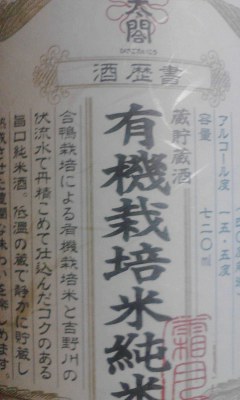 太閤
書歴酒
アルコール度 一五.五度
容量 七二〇㎖
蔵貯蔵酒
有機栽培米純米
霜月
合鴨栽培による有機栽培米と吉野川の
伏流水で丹精こめて仕込んだコクのある
旨口純米酒。低温の蔵で静かに貯蔵し